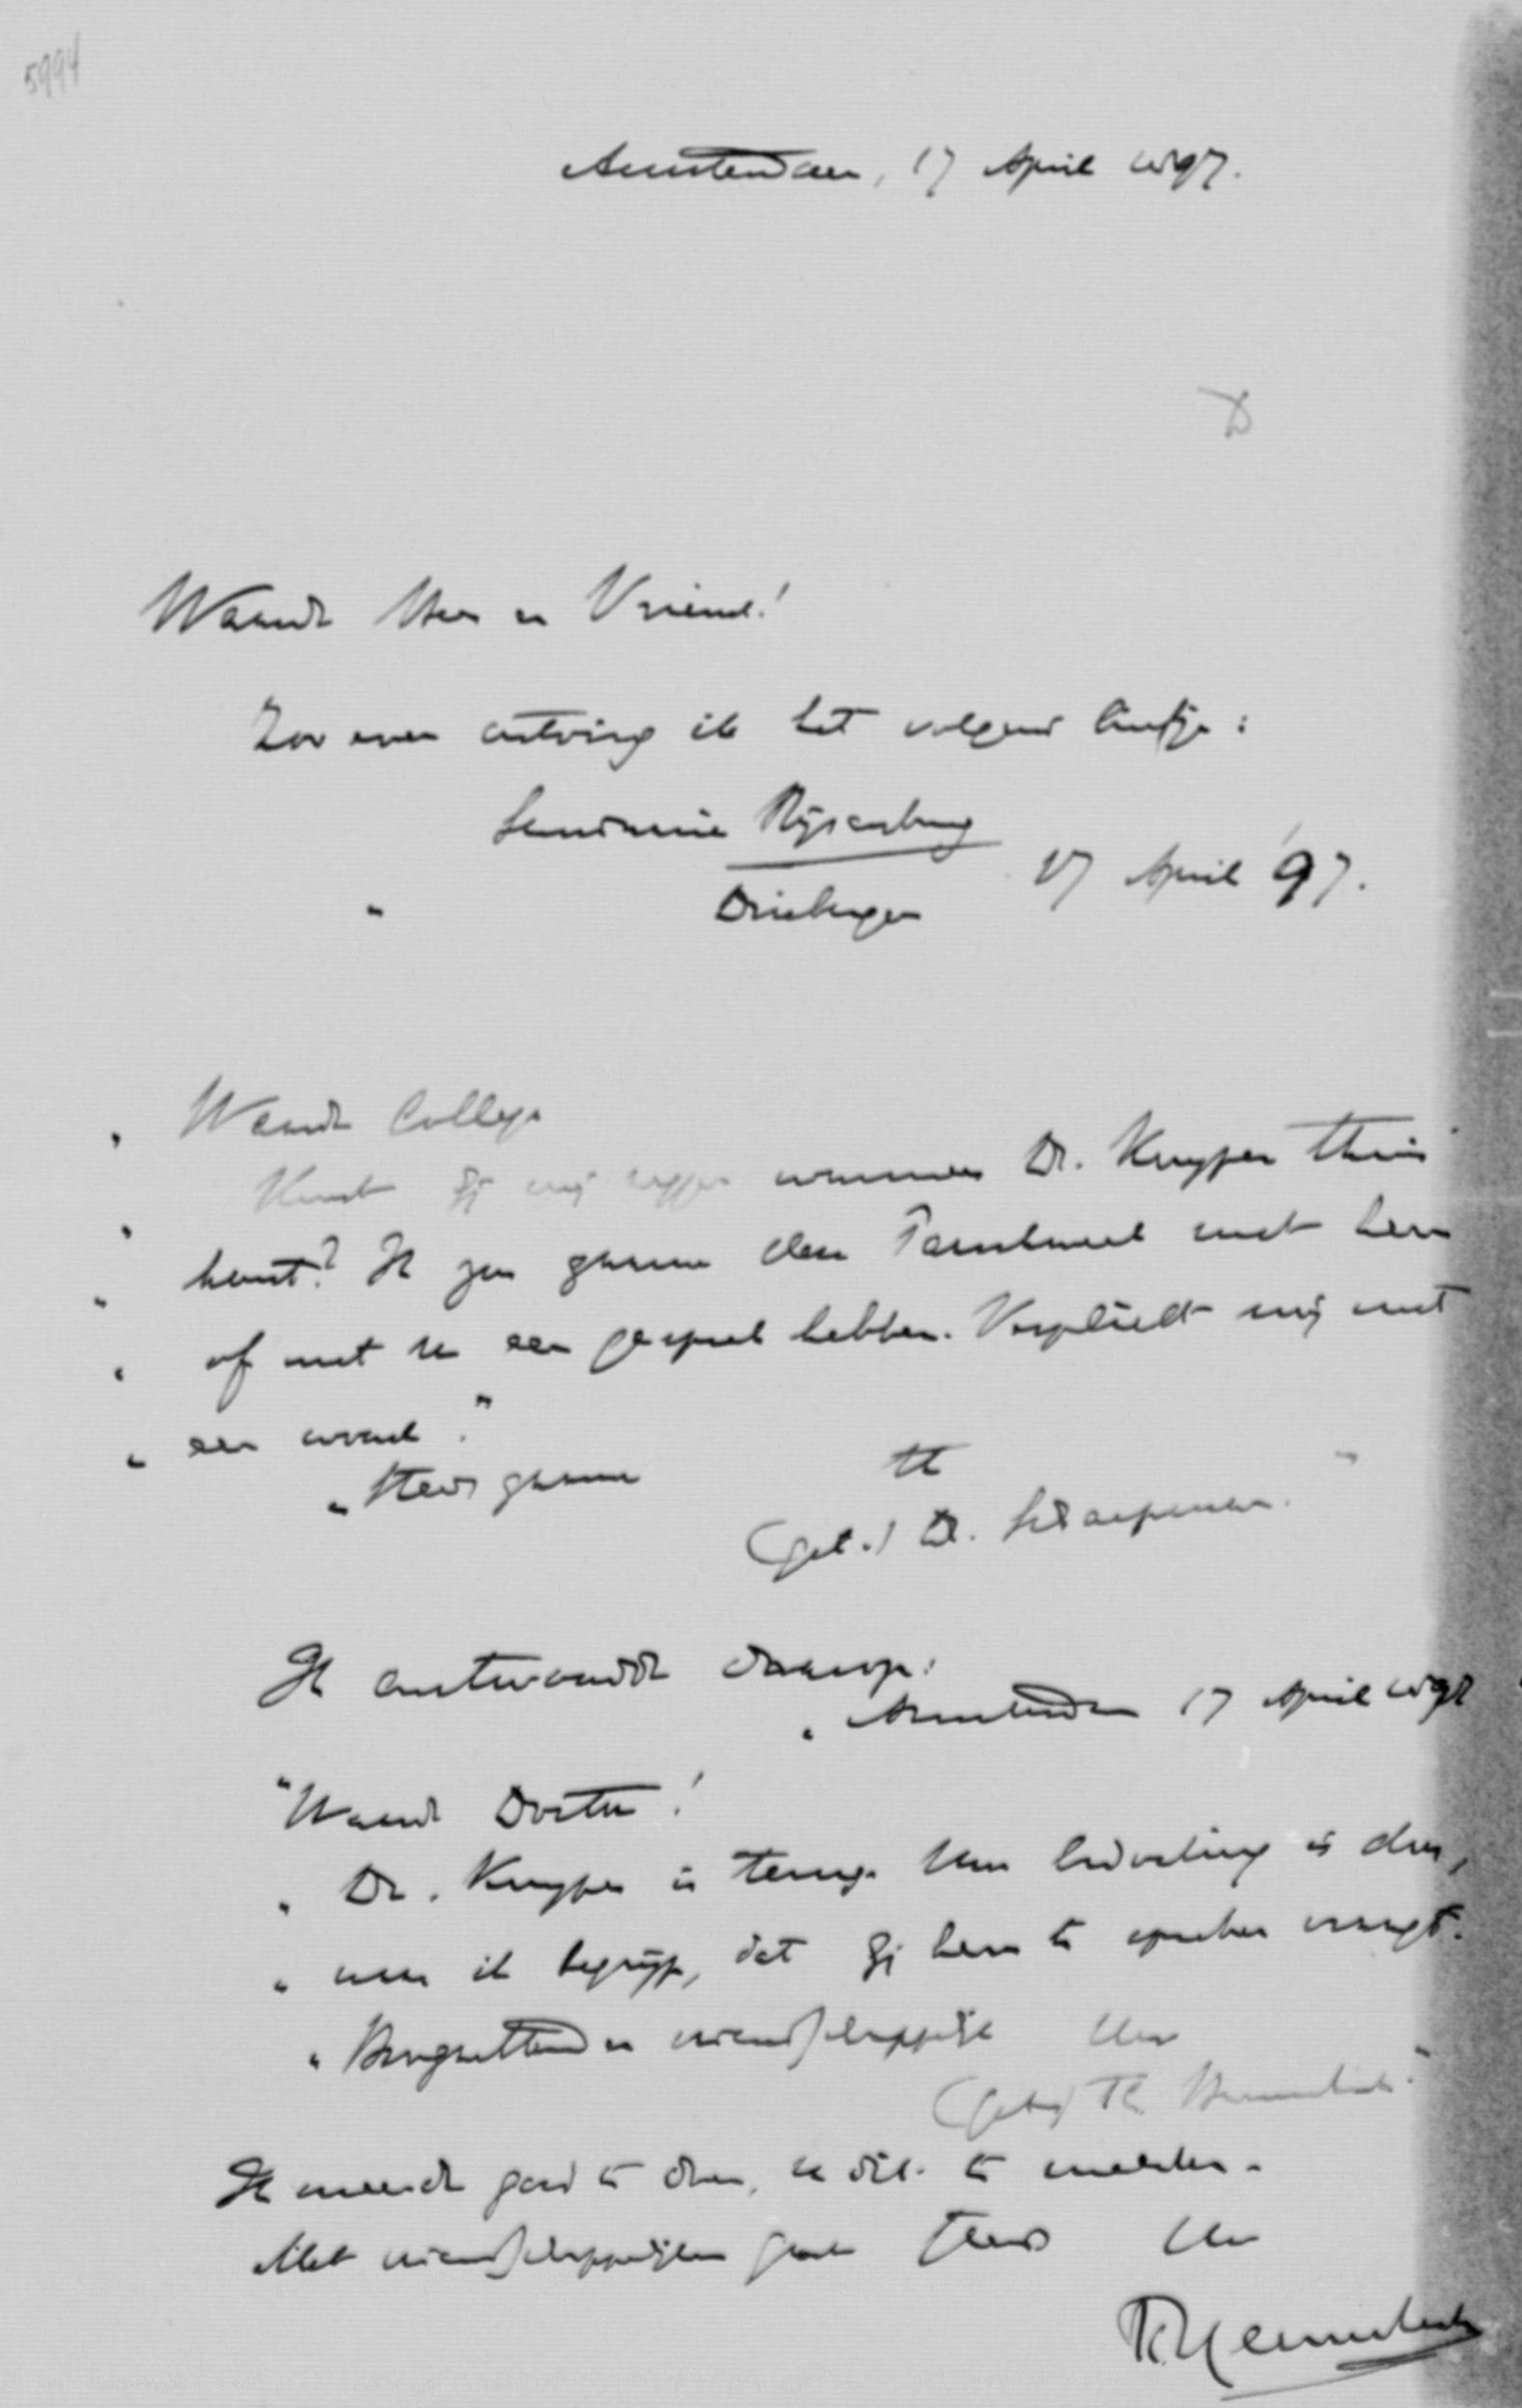 5994
Amsterdam, 17 April 1897.
Waarde Heer en Vriend!
Zoo even ontving ik het volgend briefje:
Seminarie Rijsenburg
Driebergen 17 April '97.
„ Waarde Collega
„ Kunt gij mij zeggen wanneer Dr. Kuyper thuis
„ komt? Ik zou gaarne dan mit hem
„ of met U een gesprek hebben. Verplicht mij met
„ een woord."
„ Steeds gaarne tt
(get.) Dr. Schaepman."
Ik antwoordde daarop:
„ Amsterdam 17 April 1897
"Waarde Doctor!
„ Dr. Kuyper is terug. Uw bedoeling is dus,
„ naar ik begrijp, dat gij hem te spreken vraagt.
„ Hoogachtend en vriendschappelijk Uw
(get.) Th. Heemskerk."
Ik meende goed te doen, U dit te melden.
Met vriendschappelijken groet steeds Uw
Th Heemskerk